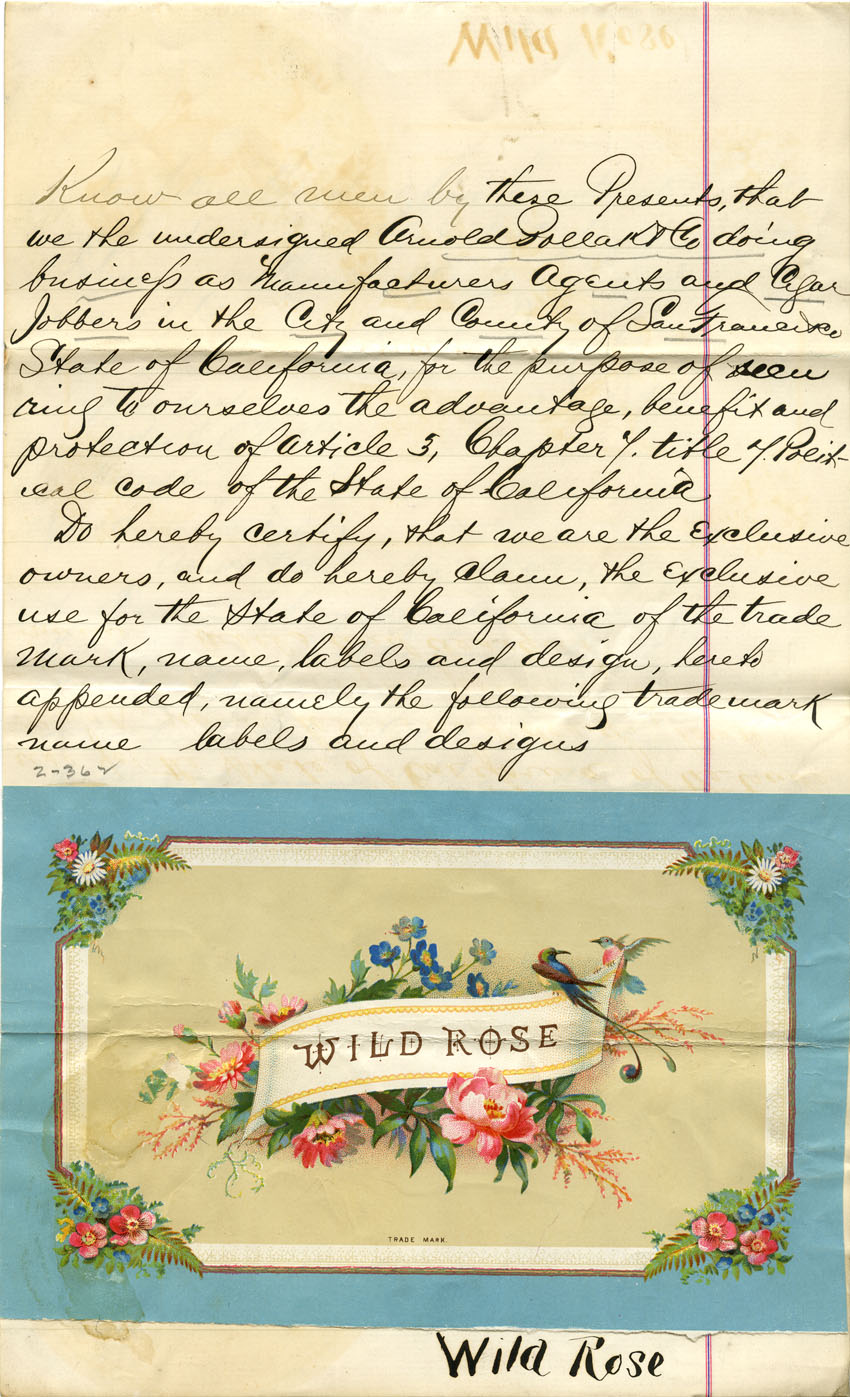 Wild Rose
Know all men by these Presents, that
we the undersigned Arnold Pollak & Co doing
business as Manufacturers Agents and Cigar
Jobbers in the City and County of San Francisco
State of California, for the purpose of secu
ring to ourselves the advantage, benefit and
protection of Article 3, Chapter 7. title 7. Polit-
ical code of the State of California
Do hereby certify, that we are the Exclusive
owners, and do hereby claim, the Exclusive
use for the State of California of the trade
mark, name, labels and design, hereto
appended, namely the following trademark
name labels and designs
2-362
WILD ROSE
TRADE MARK.
Wild Rose